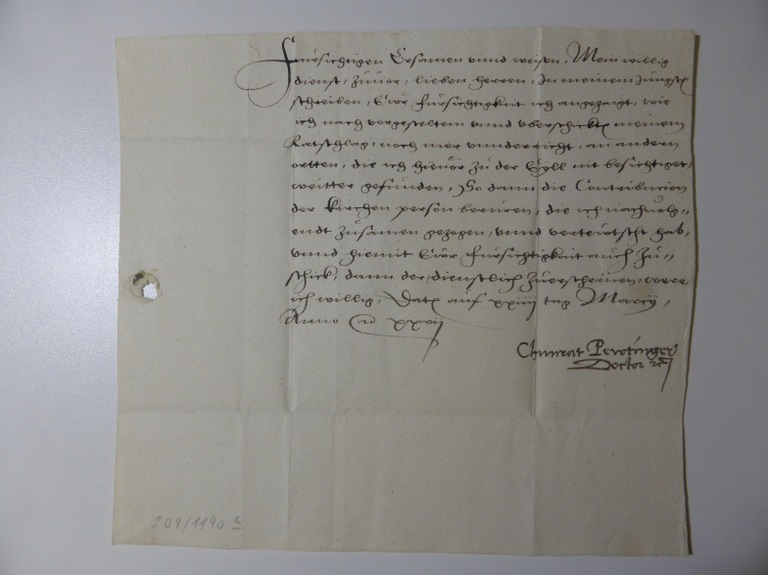 Fursichtigen Ersamen vnnd weisen. Mein willig
dienst, zuuor, lieben herren, In meinem Jungst
schreiben, Ewr fursichtigkait ich angezaigt, wie
ich nach vorgesteltem vnnd vberschickten meinem
Ratschlag, noch mer vnnderricht, an andern
ortten, die ich hieuor zu der Eyll nit besichtiget,
weitter gefunden, So dann die Contribucion
der kirchen person beruren, die ich nachuolg,,
endt zusamen gezogen, vnnd verteutscht hab,
vnnd hiemit Ewr fursichtigkait auch zu,,
schick, dann der dienstlich zuerscheinen, were
ich willig, Dat auf xxiiij tag Marcij,
Anno xxvij
Chunrat Pewtinger
Doctor
209/1190